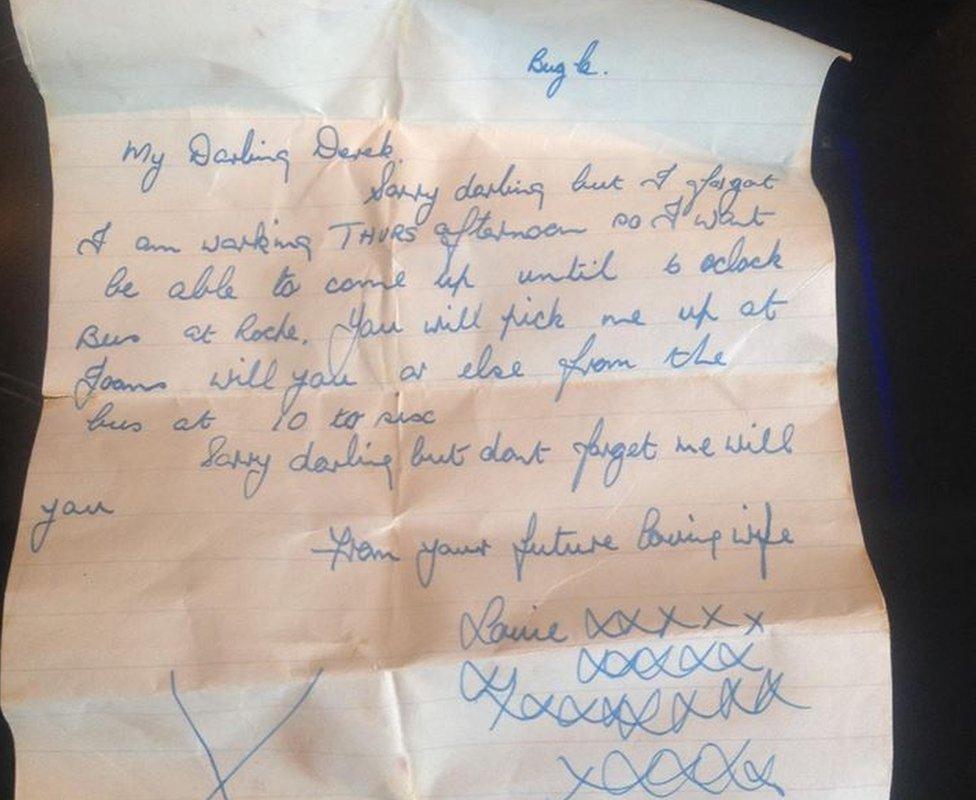 Bugle.
My Darling Derek.
Sorry darling but I forgot
I am working THURS afternoon so I wont
be able to come up until 6 oclock
Bus at Roche. You will pick me up at
Joans will you or else from the
bus at 10 to six
Sorry darling but dont forget me will
you
From your future loving wife
Louie xxxxx
xxxxx
xxxxxxxxx
X xxxxx